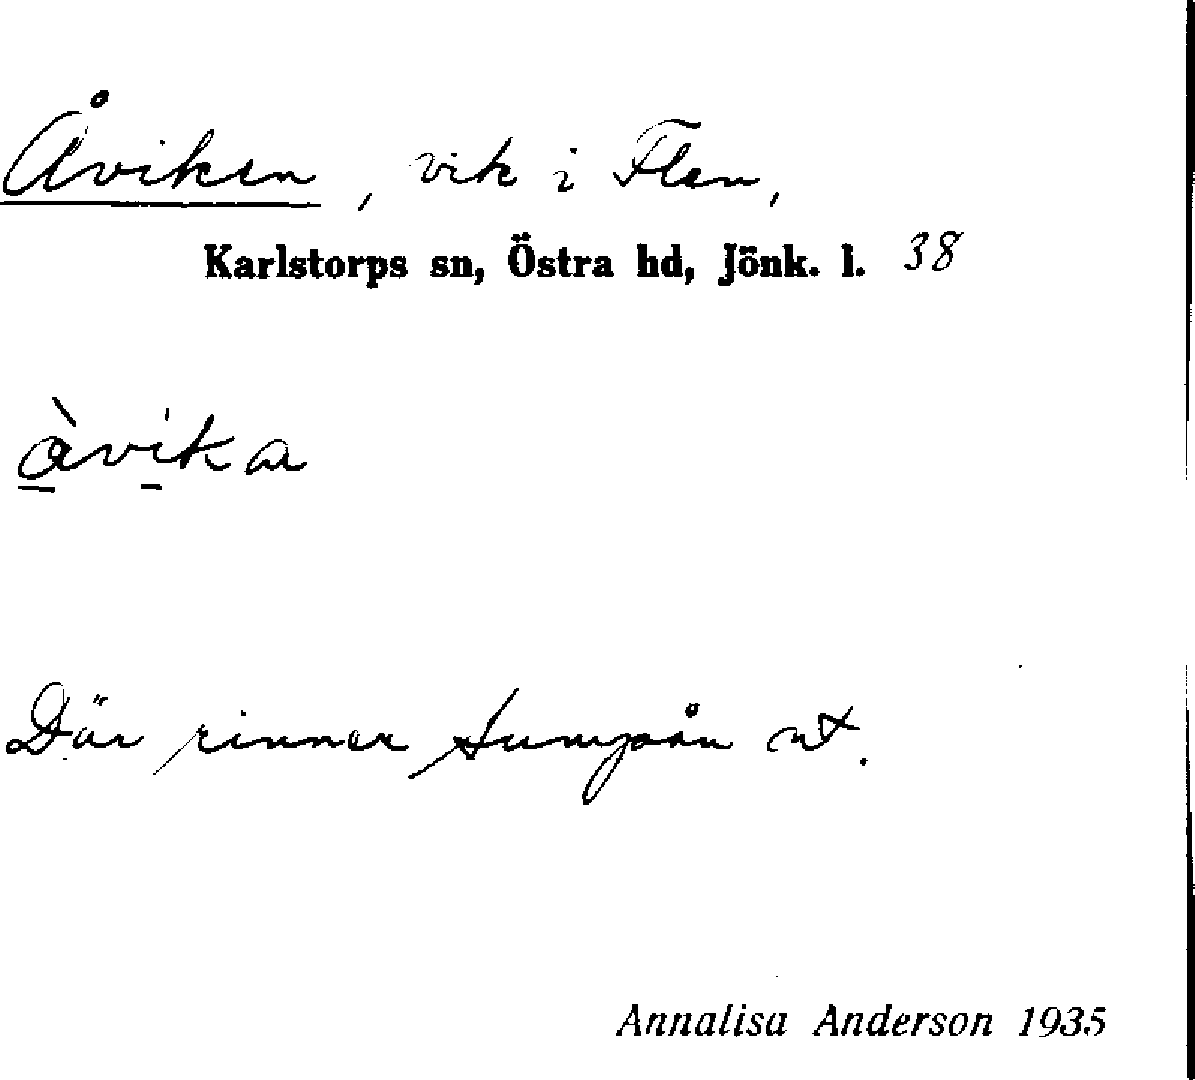 Åviken, vik i Flen,
Karlstorps sn, Östra hd, Jönk. l. 38
àvika
Där rinner Sumpån ut.
Annalisa Anderson 1935